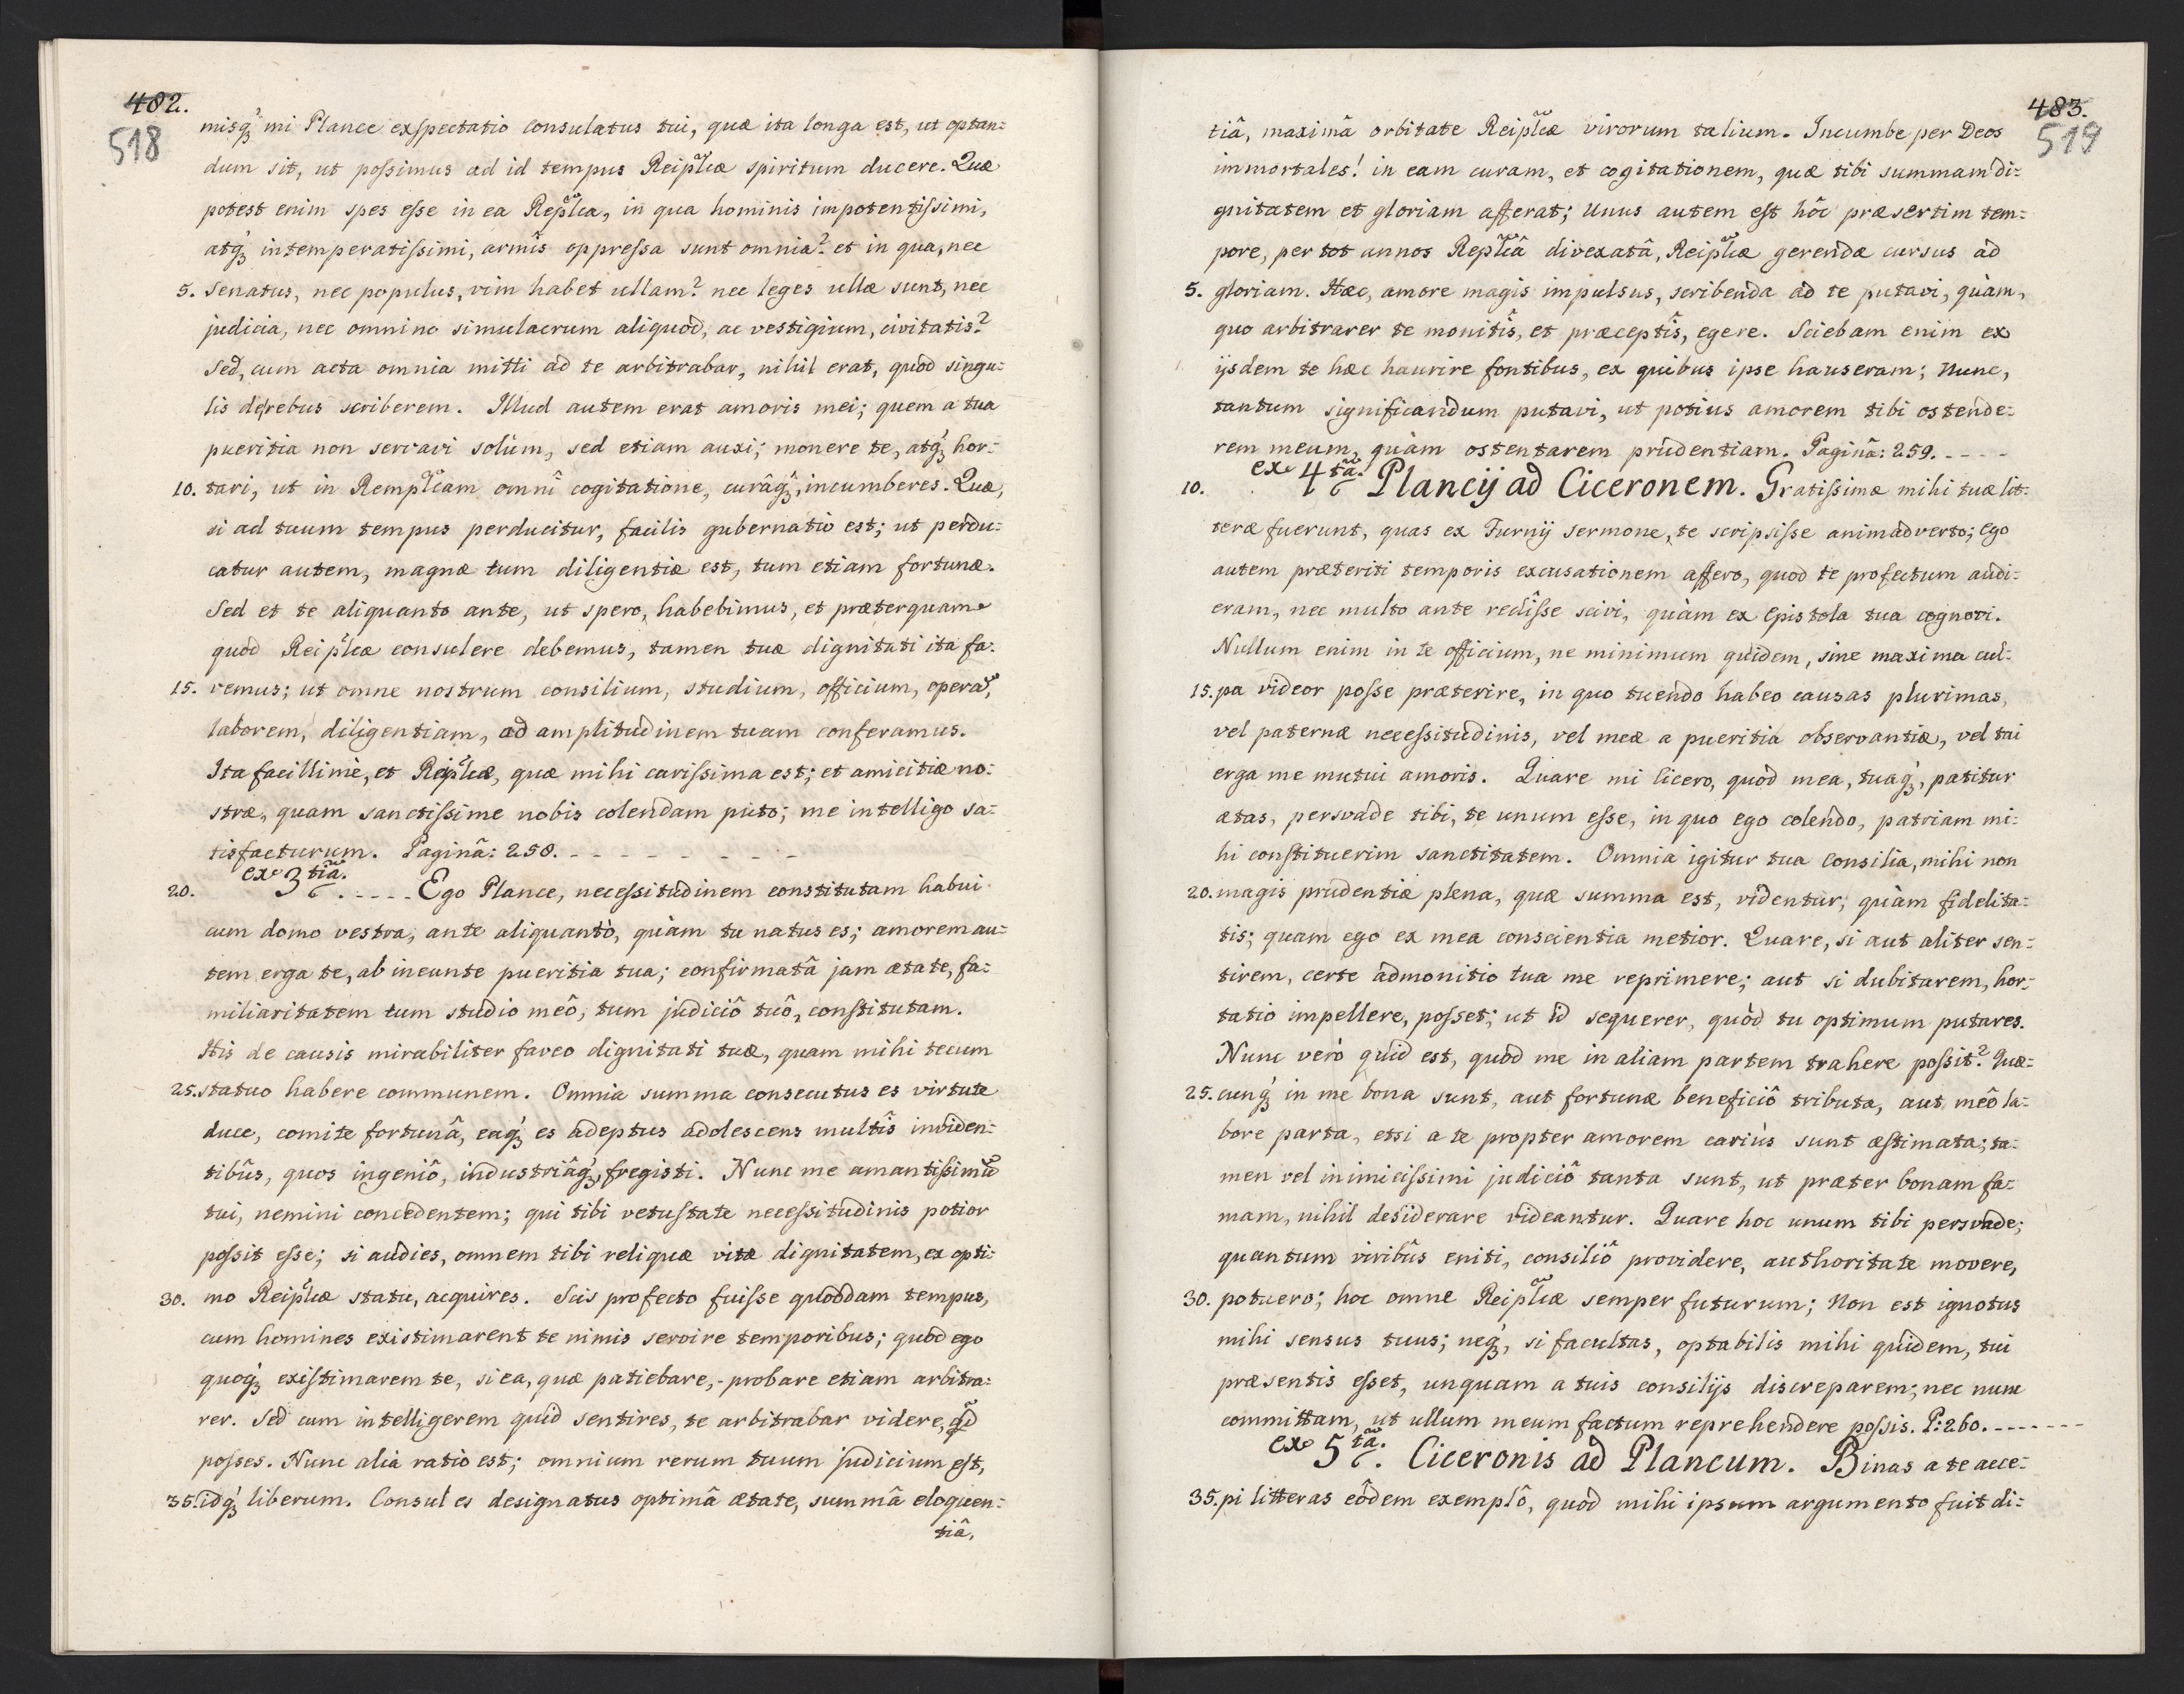 482.
518
misq́ꝫ mi Plance exspectatio consulatus tui, quæ ita longa est, ut optan=
dum sit, ut possimus ad id tempus Reiplcæ spiritum ducere. Quæ
potest enim spes esse in ea Replca, in qua hominis impotentissimi,
atq́ꝫ intemperatissimi, armîs oppressa sunt omnia? et in qua, nec
5. Senatus, nec populus, vim habet ullam? nec leges ullæ sunt, nec
judicia, nec omnino simulacrum aliquod, ac vestigium, civitatis?
Sed, cum acta omnia mitti ad te arbitrabar, nihil erat, quòd singu=
lis de rebus scriberem. Illud autem erat amoris mei; quem a tua
pueritia non servavi solùm, sed etiam auxi; monere te, atq́ꝫ hor=
10. tari, ut in Remplcam omnî cogitatione, curâq́ꝫ, incumberes. Quæ,
si ad tuum tempus perducitur, facilis gubernatio est; ut perdu=
catur autem, magnæ tum diligentiæ est, tum etiam fortunæ.
Sed et te aliquanto ante, ut spero, habebimus, et præterquam
quod Reiplcæ consulere debemus, tamen tuæ dignitati ita fa=
15. vemus; ut omne nostrum consilium, studium, officium, operã,
laborem, diligentiam, ad amplitudinem tuam conferamus.
Ita facillimè, et Reiplcæ, quæ mihi carissima est; et amicitiæ no=
stræ, quam sanctissime nobis colendam puto; me intelligo sa=
tisfacturum. Paginâ: 258. - - - - - - - -
20. ex 3tiã. - - - - Ego Plance, necessitudinem constitutam habui
cum domo vestra, ante aliquantò, quàm tu natus es; amorem au=
tem erga te, ab ineunte pueritia tua; confirmatâ jam ætate, fa=
miliaritatem tum studio meô, tum judiciô tuô, constitutam.
His de causis mirabiliter faveo dignitati tuæ, quam mihi tecum
25. statuo habere communem. Omnia summa consecutus es virtute
duce, comite fortunâ, eaq́ꝫ es adeptus adolescens multîs inviden=
tibûs, quos ingeniô, industriâq́ꝫ, fregisti. Nunc me amantissimũ
tui, nemini concedentem; qui tibi vetustate necessitudinis potior
possit esse; si audies, omnem tibi reliquæ vitæ dignitatem, ex opti=
30. mo Reiplcæ statu, acquires. Scis profecto fuisse quoddam tempus,
cum homines existimarent te nimis servire temporibus; quod ego
quoq́ꝫ existimarem te, si ea, quæ patiebare, - probare etiam arbitra=
rer. Sed cum intelligerem quid sentires, te arbitrabar videre, qd
posses. Nunc alia ratio est; omnium rerum tuum judicium est,
35. idq́ꝫ liberum. Consul es designatus optimâ ætate, summâ eloquen=
tiâ,
483.
519
tiâ, maximâ orbitate Reiplcæ virorum talium. Incumbe per Deos
immortales! in eam curam, et cogitationem, quæ tibi summam di=
gnitatem et gloriam afferat; Unus autem est hôc præsertim tem=
pore, per tot annos Replcâ divexatâ, Reiplcæ gerendæ cursus ad
5. gloriam. Hæc, amore magis impulsus, scribenda ad te putavi, quàm,
quo arbitrarer te monitîs, et præceptîs, egere. Sciebam enim ex
ijsdem te hæc haurire fontibus, ex quibus ipse hauseram; Nunc,
tantum significandum putavi, ut potius amorem tibi ostende=
rem meum, quàm ostentarem prudentiam. Paginâ: 259. - - - -
10. ex 4tâ. Plancij ad Ciceronem. Gratissimæ mihi tuæ lit=
teræ fuerunt, quas ex Furnij sermone, te scripsisse animadverto; Ego
autem præteriti temporis excusationem affero, quod te profectum audi=
eram, nec multo ante redîsse scivi, quàm ex Epistola tua cognovi.
Nullum enim in te officium, ne minimum quidem, sine maxima cul=
15. pa videor posse præterire, in quo tuendo habeo causas plurimas,
vel paternæ necessitudinis, vel meæ a pueritia observantiæ, vel tui
erga me mutui amoris. Quare mi Cicero, quòd mea, tuaq́ꝫ, patitur
ætas, persvade tibi, te unum esse, in quo ego colendo, patriam mi=
hi constituerim sanctitatem. Omnia igitur tua Consilia, mihi non
20. magis prudentiæ plena, quæ summa est, videntur; quàm fidelita=
tis; quam ego ex mea conscientia metior. Quare, si aut aliter sen=
tirem, certe admonitio tua me reprimere; aut si dubitarem, hor=
tatio impellere, posset; ut id sequerer, quòd tu optimum putares.
Nunc verò quid est, quòd me in aliam partem trahere possit? Quæ=
25. cunq́ꝫ in me bona sunt, aut fortunæ beneficiô tributa, aut meô la=
bore parta, etsi a te propter amorem cariùs sunt æstimata; ta=
men vel inimicissimi judiciô tanta sunt, ut præter bonam fa=
mam, nihil desiderare videantur. Quare hoc unum tibi persvade;
quantum viribûs eniti, consiliô providere, authoritate movere,
30. potuero; hoc omne Reiplcæ semper futurum; Non est ignotus
mihi sensus tuus; neq́ꝫ, si facultas, optabilis mihi quidem, tui
præsentis esset, unquam a tuis consilijs discreparem; nec nunc
committam, ut ullum meum factum reprehendere possis. P: 260. - - - - - -
ex 5tâ. Ciceronis ad Plancum. Binas a te acce=
35. pi litteras eôdem exemplô, quòd mihi ipsum argumento fuit di=